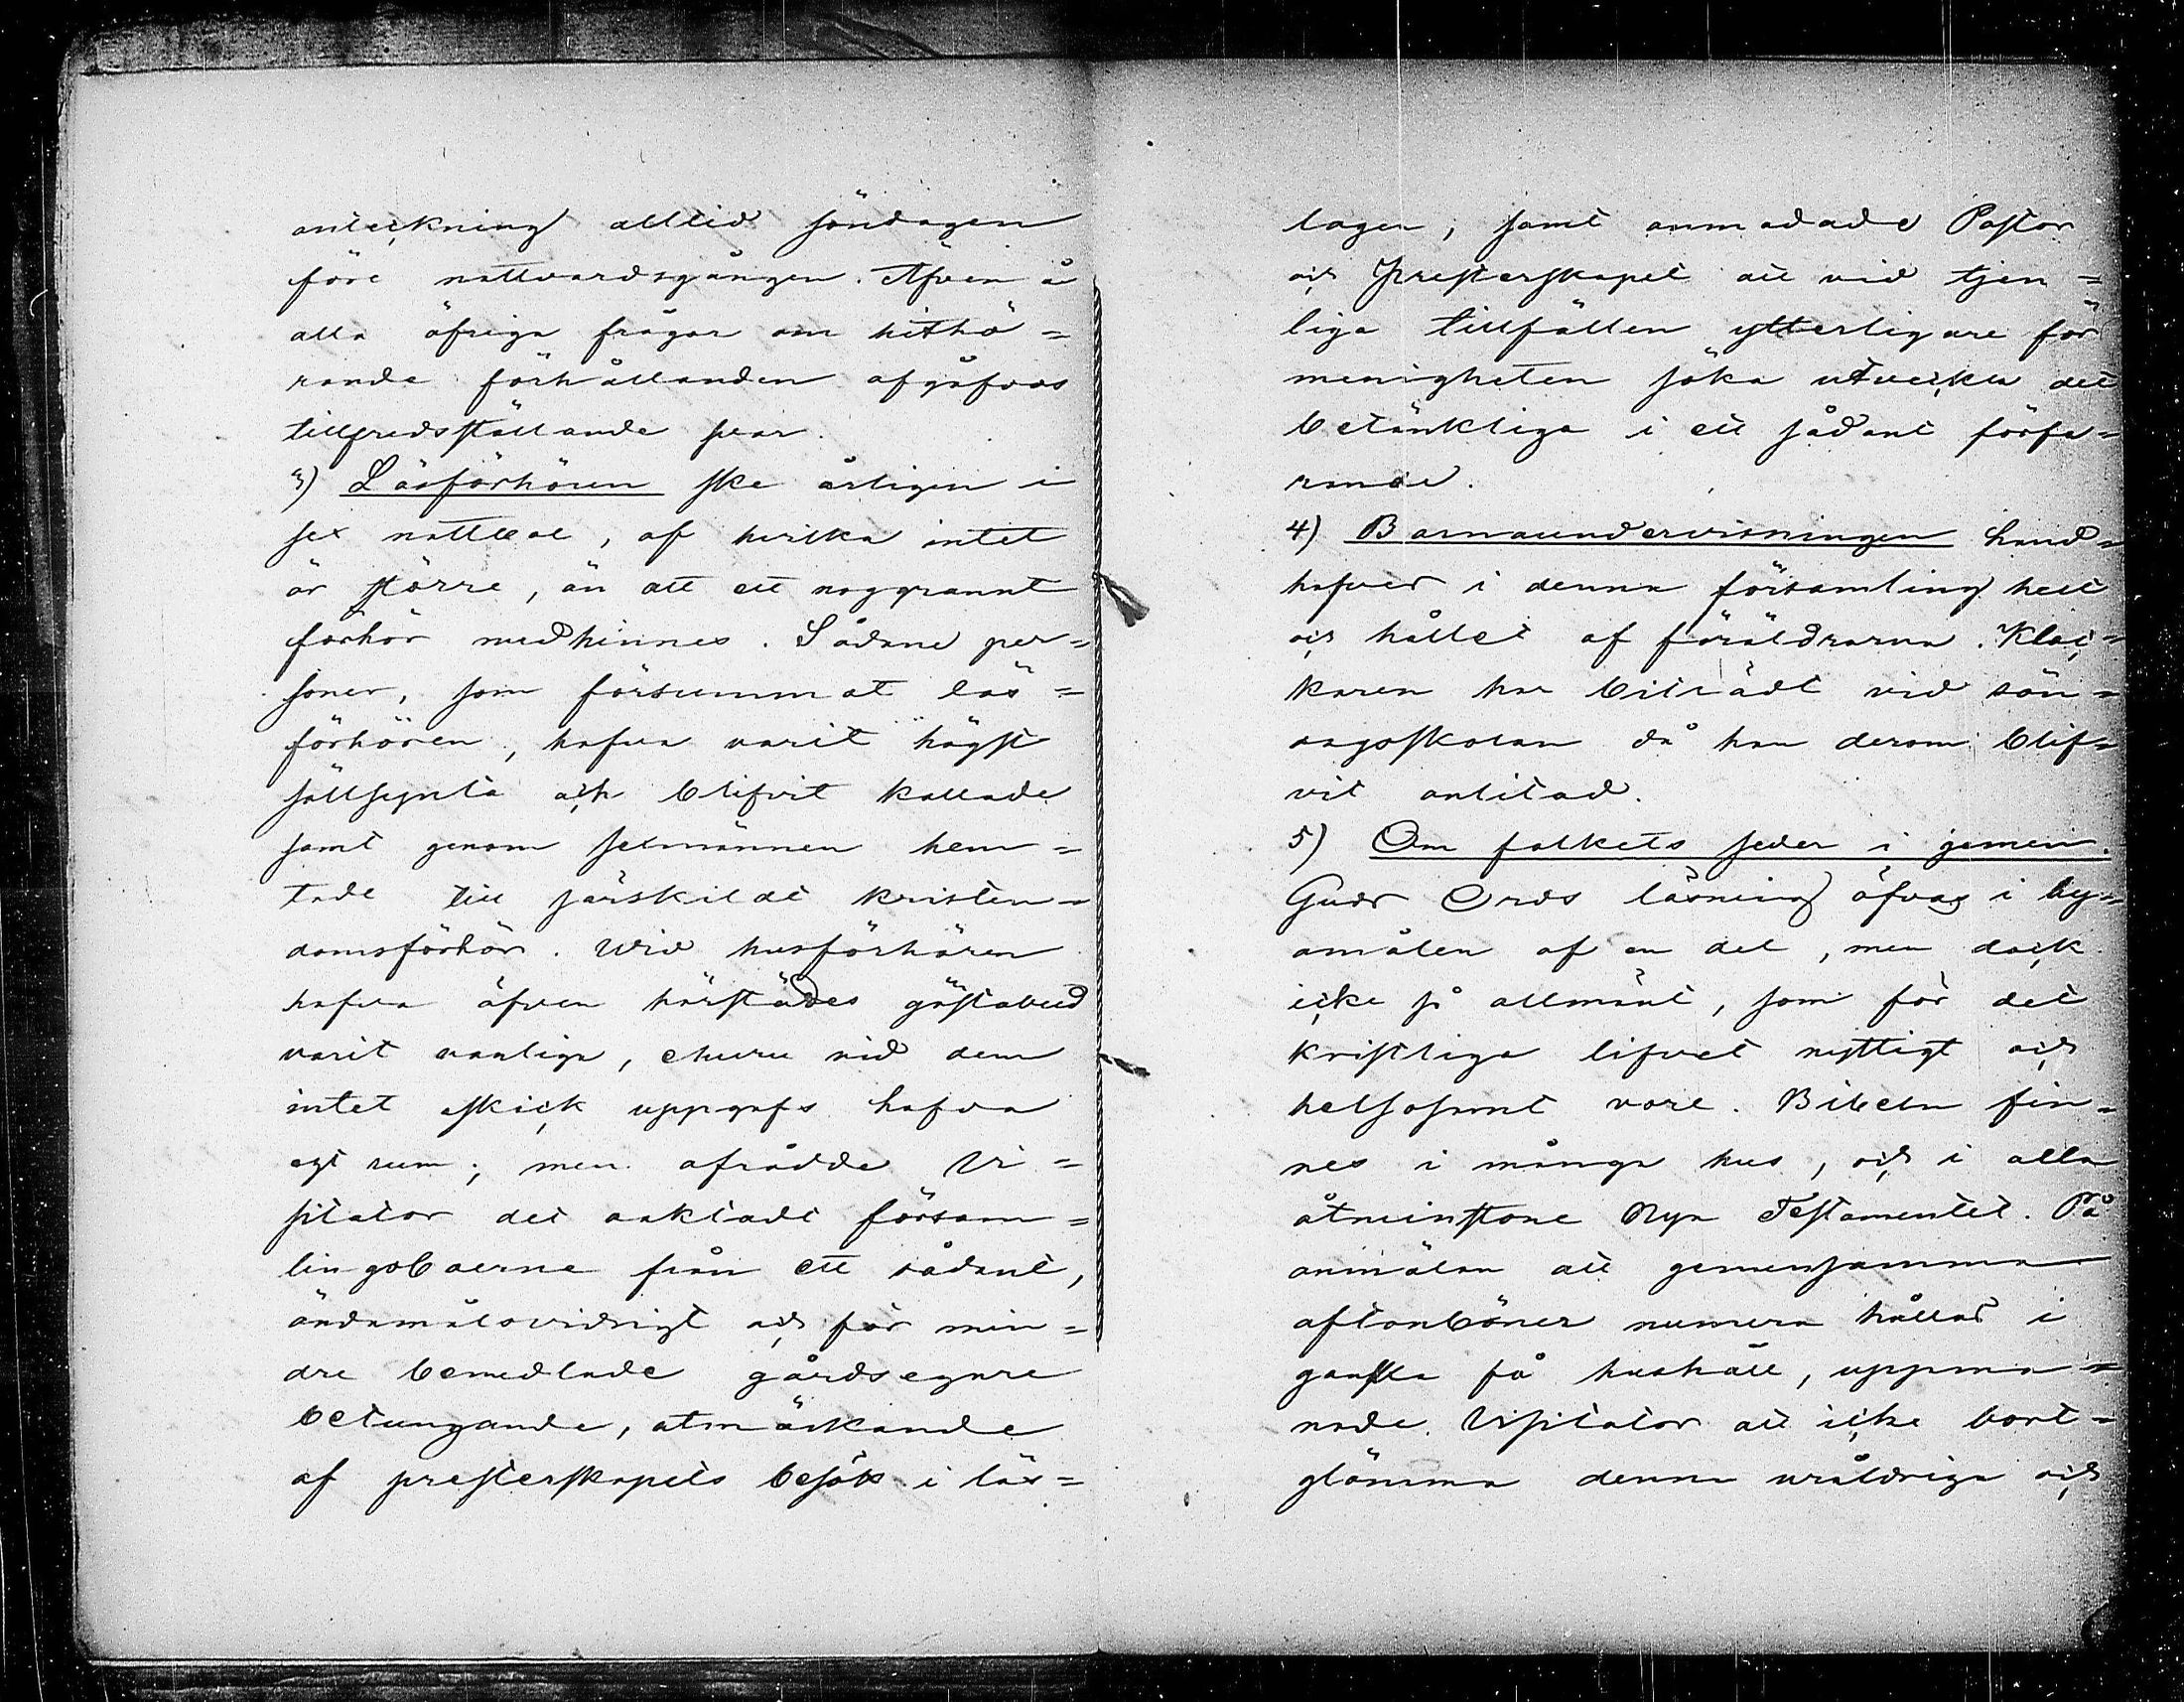 anteckning alltid söndagen
före nattvardsgången. Äfven å
alla öfriga frågor om hithö=
rande förhållanden afgåfvos
tillfredsställande svar.
3) Läsförhören ske årligen i
sex nattlag, af hvilka intet
är större, än att ett noggrannt
förhör medhinnes. Sådane per=
soner, som försummat läs=
förhören, hafva varit högst
sällsynta och blifvit kallade
samt genom sexmännen hem=
tade till särskildt kristen=
domsförhör. Wid husförhören
hafva äfven härstädes gästabud
varit vanliga, ehuru vid dem
intet oskick uppgafs hafva
egt rum; men afrådde Vi=
sitator det aktade försam=
lingsboerne från ett sådant,
ändamålsvidrigt och för min=
dre bemedlade gårdsegare
betungande, utmärkande
af presterskapets besök i läs=
lagen, samt anmodade Pastor
och Presterskapet att vid tjen=
liga tillfällen ytterligare för
menigheten söka utveckla det
betänkliga i ett sådant förfa=
rande.
4) Barnaundervisningen hand=
hafves i denna församling helt
och hållet af föräldrarna. Kloc=
karen har biträdt vid sön=
dagsskolan då han derom blif=
vit anlitad.
5) Om folkets seder i gemen.
Guds Ords läsning öfvas i by=
amålen af en del, men dock
icke så allmänt, som för det
kristliga lifvet nyttigt och
helsosamt vore. Bibeln fin=
nes i många hus, och i alla
åtminstone Nya Testamentet. På
anmälan att gemensamma
aftonböner numera hållas i
ganska få hushåll, uppma=
nade Visitator att icke bort=
glömma denna uråldriga och